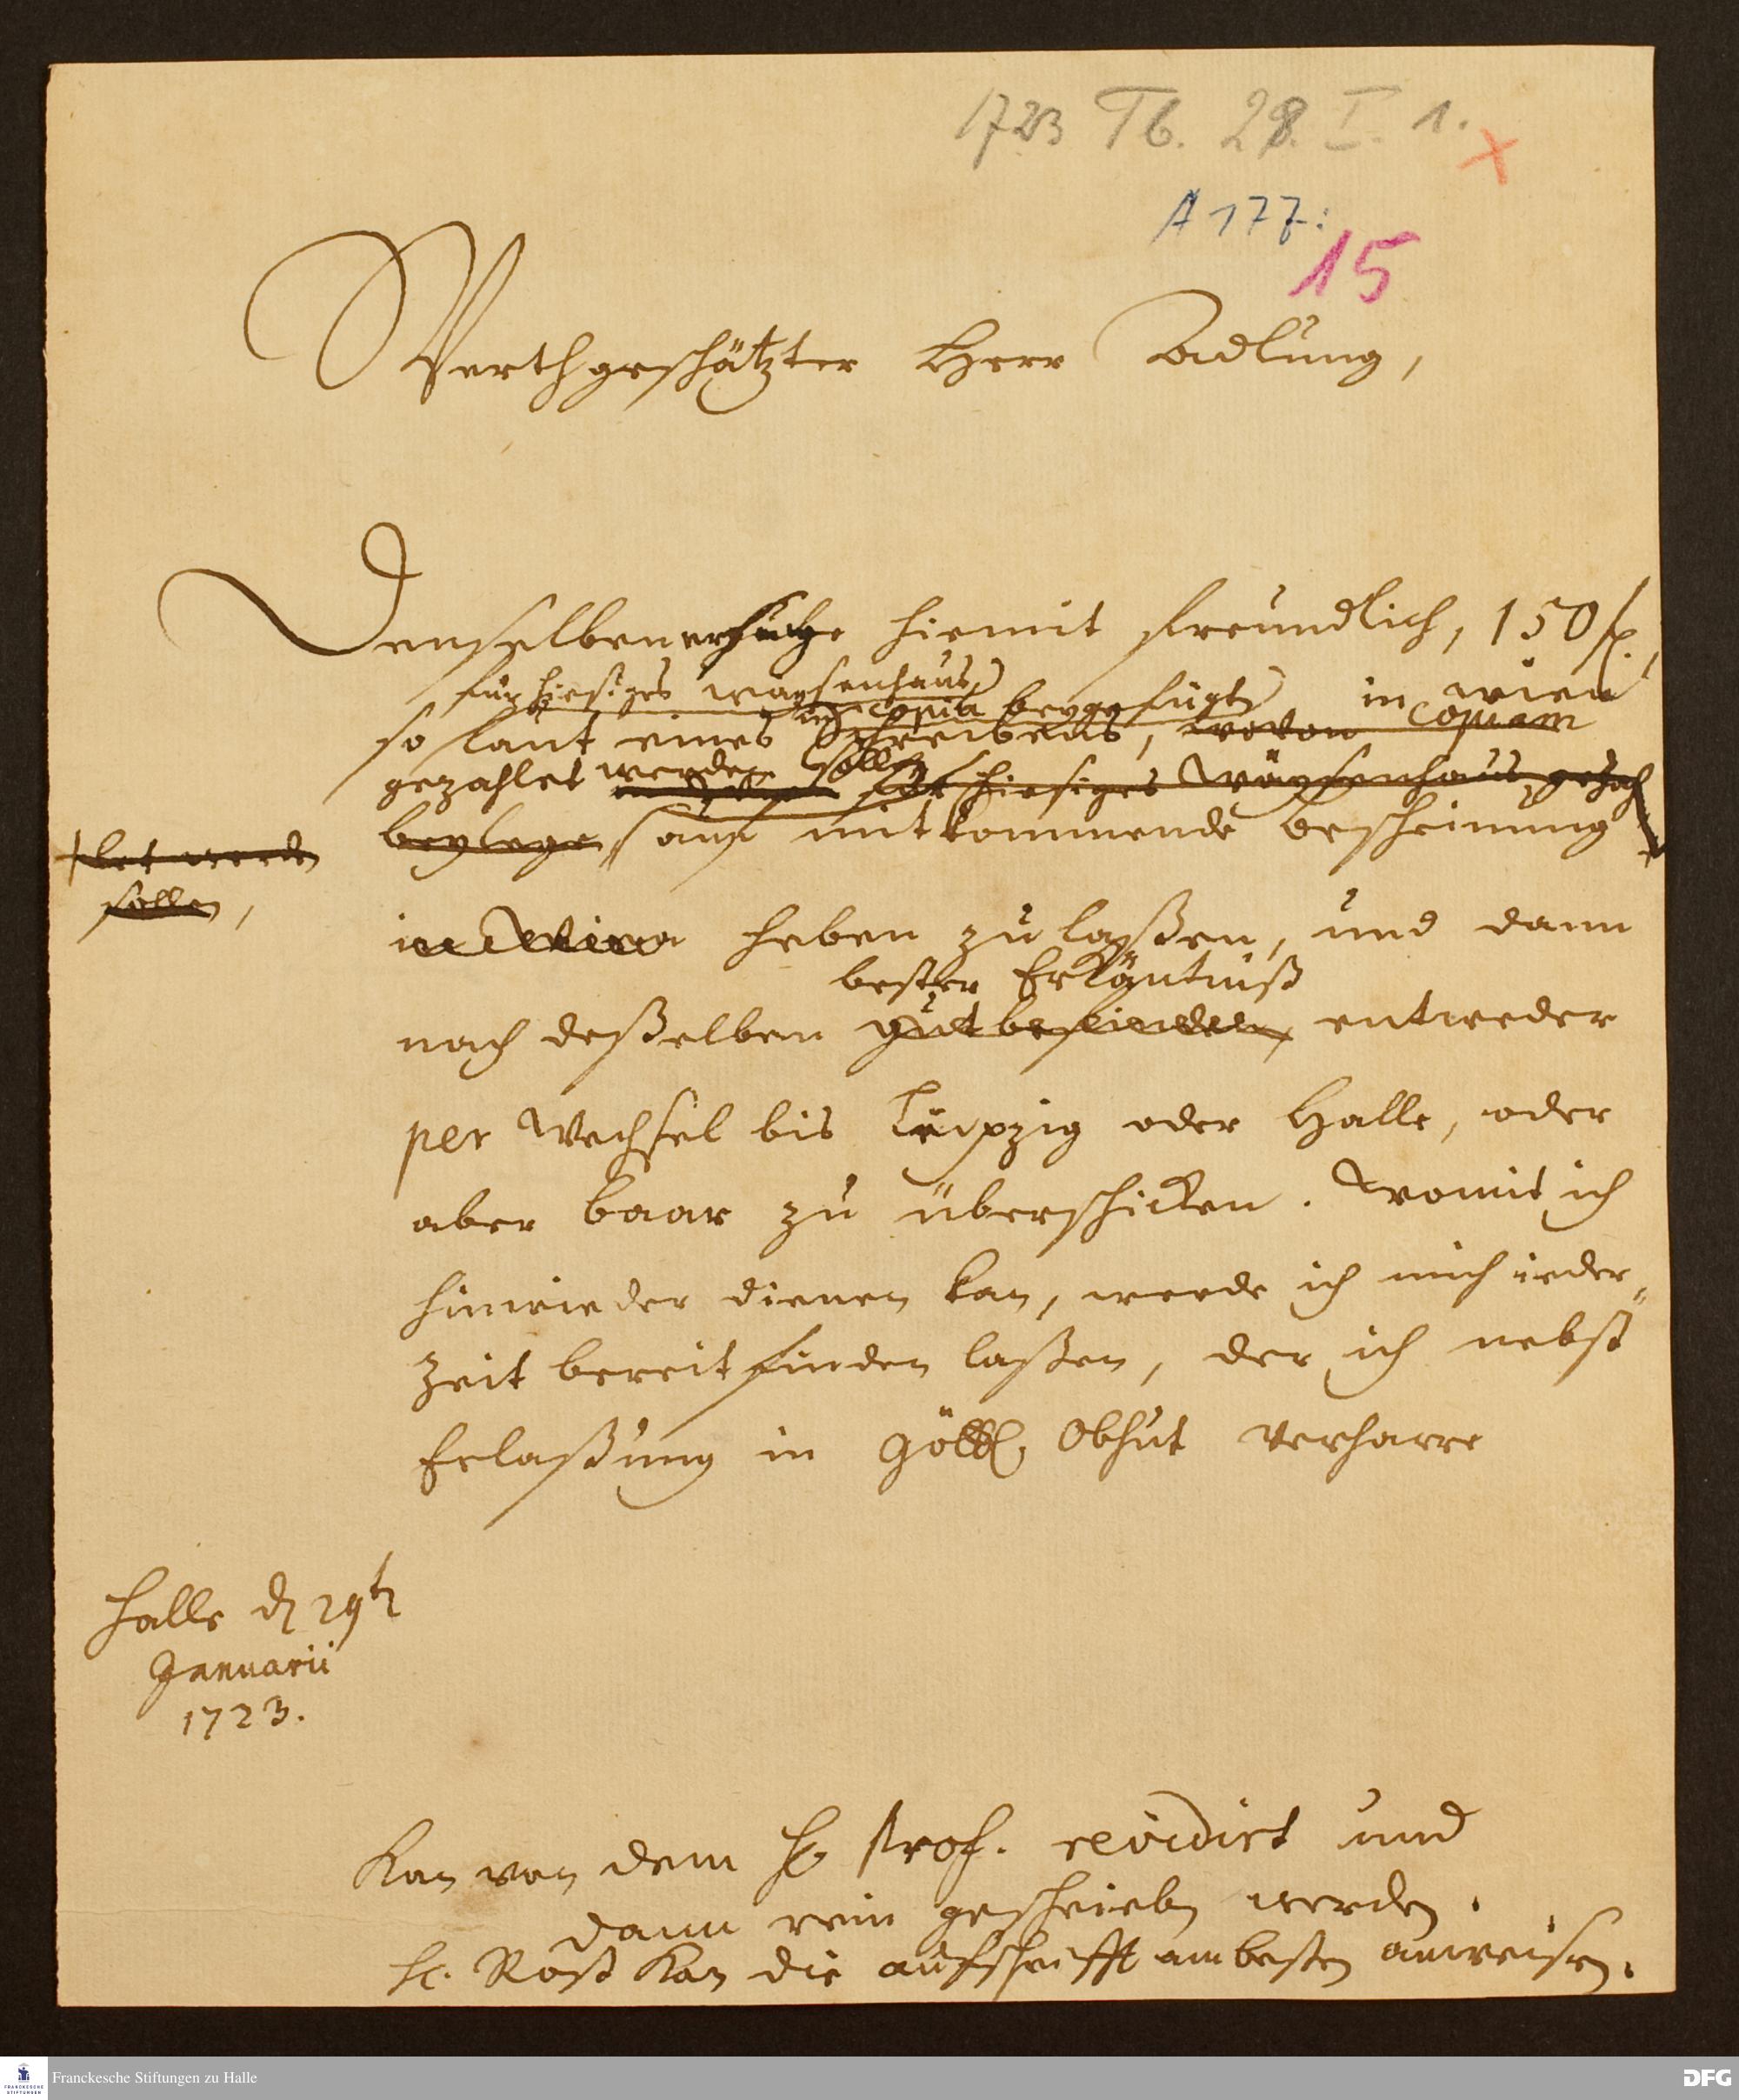 1723 Tb. 28. I. 1.
A 177:
15
Werthgeschätzter Herr Adlung,
Denselben ersuche hiemit freundlich, 150 f.,
für hiesiges waysenhaus in wien
in copia beygefügte
so laut eines Schreibens, wovon Copiam
gezahlet werden sollen für hiesiges Wäysenhaus gezah
beylege, auf mitkommende bescheinung
let werden
sollen,
in Wien heben zu laßen, und dann
bester Erkäntniß
nach deßelben gutbefinden, entweder
per Wechsel bis Leipzig oder Halle, oder
aber baar zu überschicken. Womit ich
hinwieder dienen kan, werde ich mich ieder„
Zeit bereit finden laßen, der ich nebst
Erlaßung in Göttl. Obhut verharre
Halle d 29t
Januarii
1723.
Kan von dem H. Prof. revidirt und
dann rein geschrieben werden.
H. Rost kan die aufschrifft am besten anweisen.
FRANCKESCHE
STIFTUNGEN
Franckesche Stiftungen zu Halle
DFG